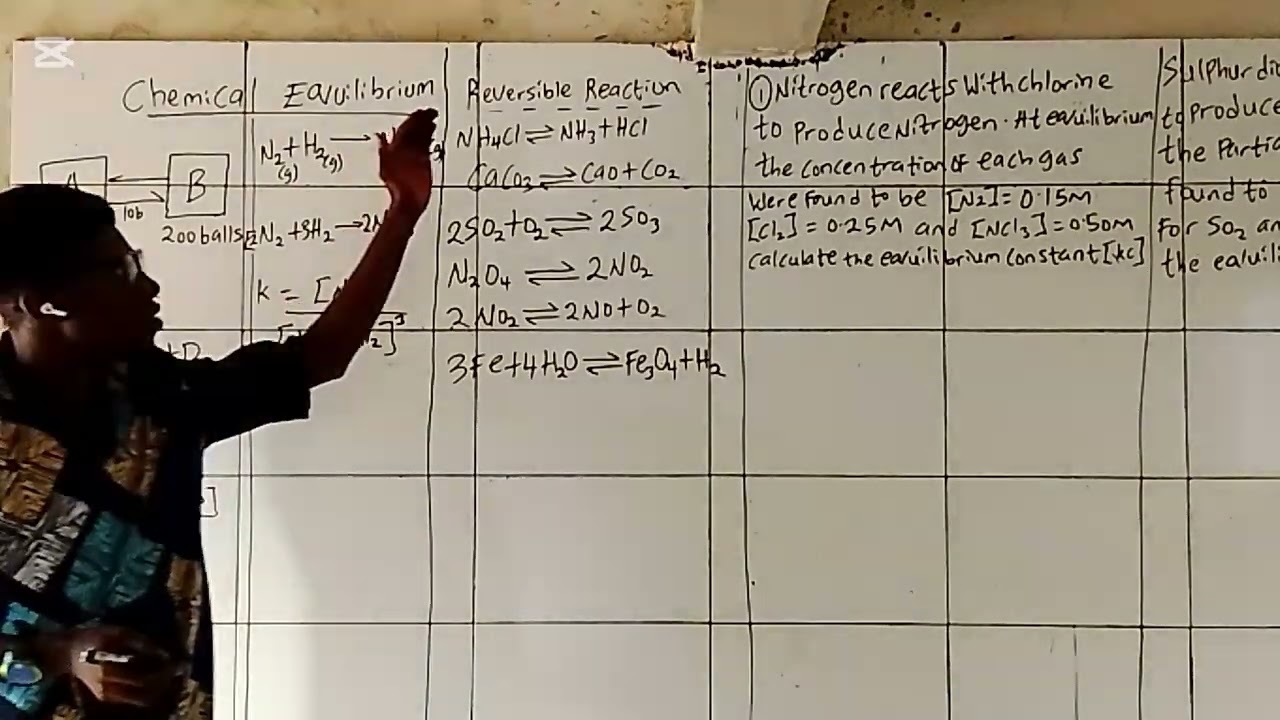 Chemical Equilibrium
N₂ + H₂ ⟶ N
(g) (g) (g)
A B
10b
200 balls
N₂ + 3H₂ ⟶ 2N
K = [
]³
Reversible Reaction
NH₄Cl ⇌ NH₃ + HCl
CaCO₃ ⇌ CaO + CO₂
2SO₂ + O₂ ⇌ 2SO₃
N₂O₄ ⇌ 2NO₂
2NO₂ ⇌ 2NO + O₂
3Fe + 4H₂O ⇌ Fe₃O₄ + H₂
① Nitrogen reacts With chlorine
to Produce Nitrogen. At equilibrium
the concentration of each gas
Were found to be [N₂] = 0.15M
[Cl₂] = 0.25M and [NCl₃] = 0.50M
Calculate the equilibrium constant [kc]
Sulphur di
to Produce
the Partia
found to
For SO₂ an
the equili